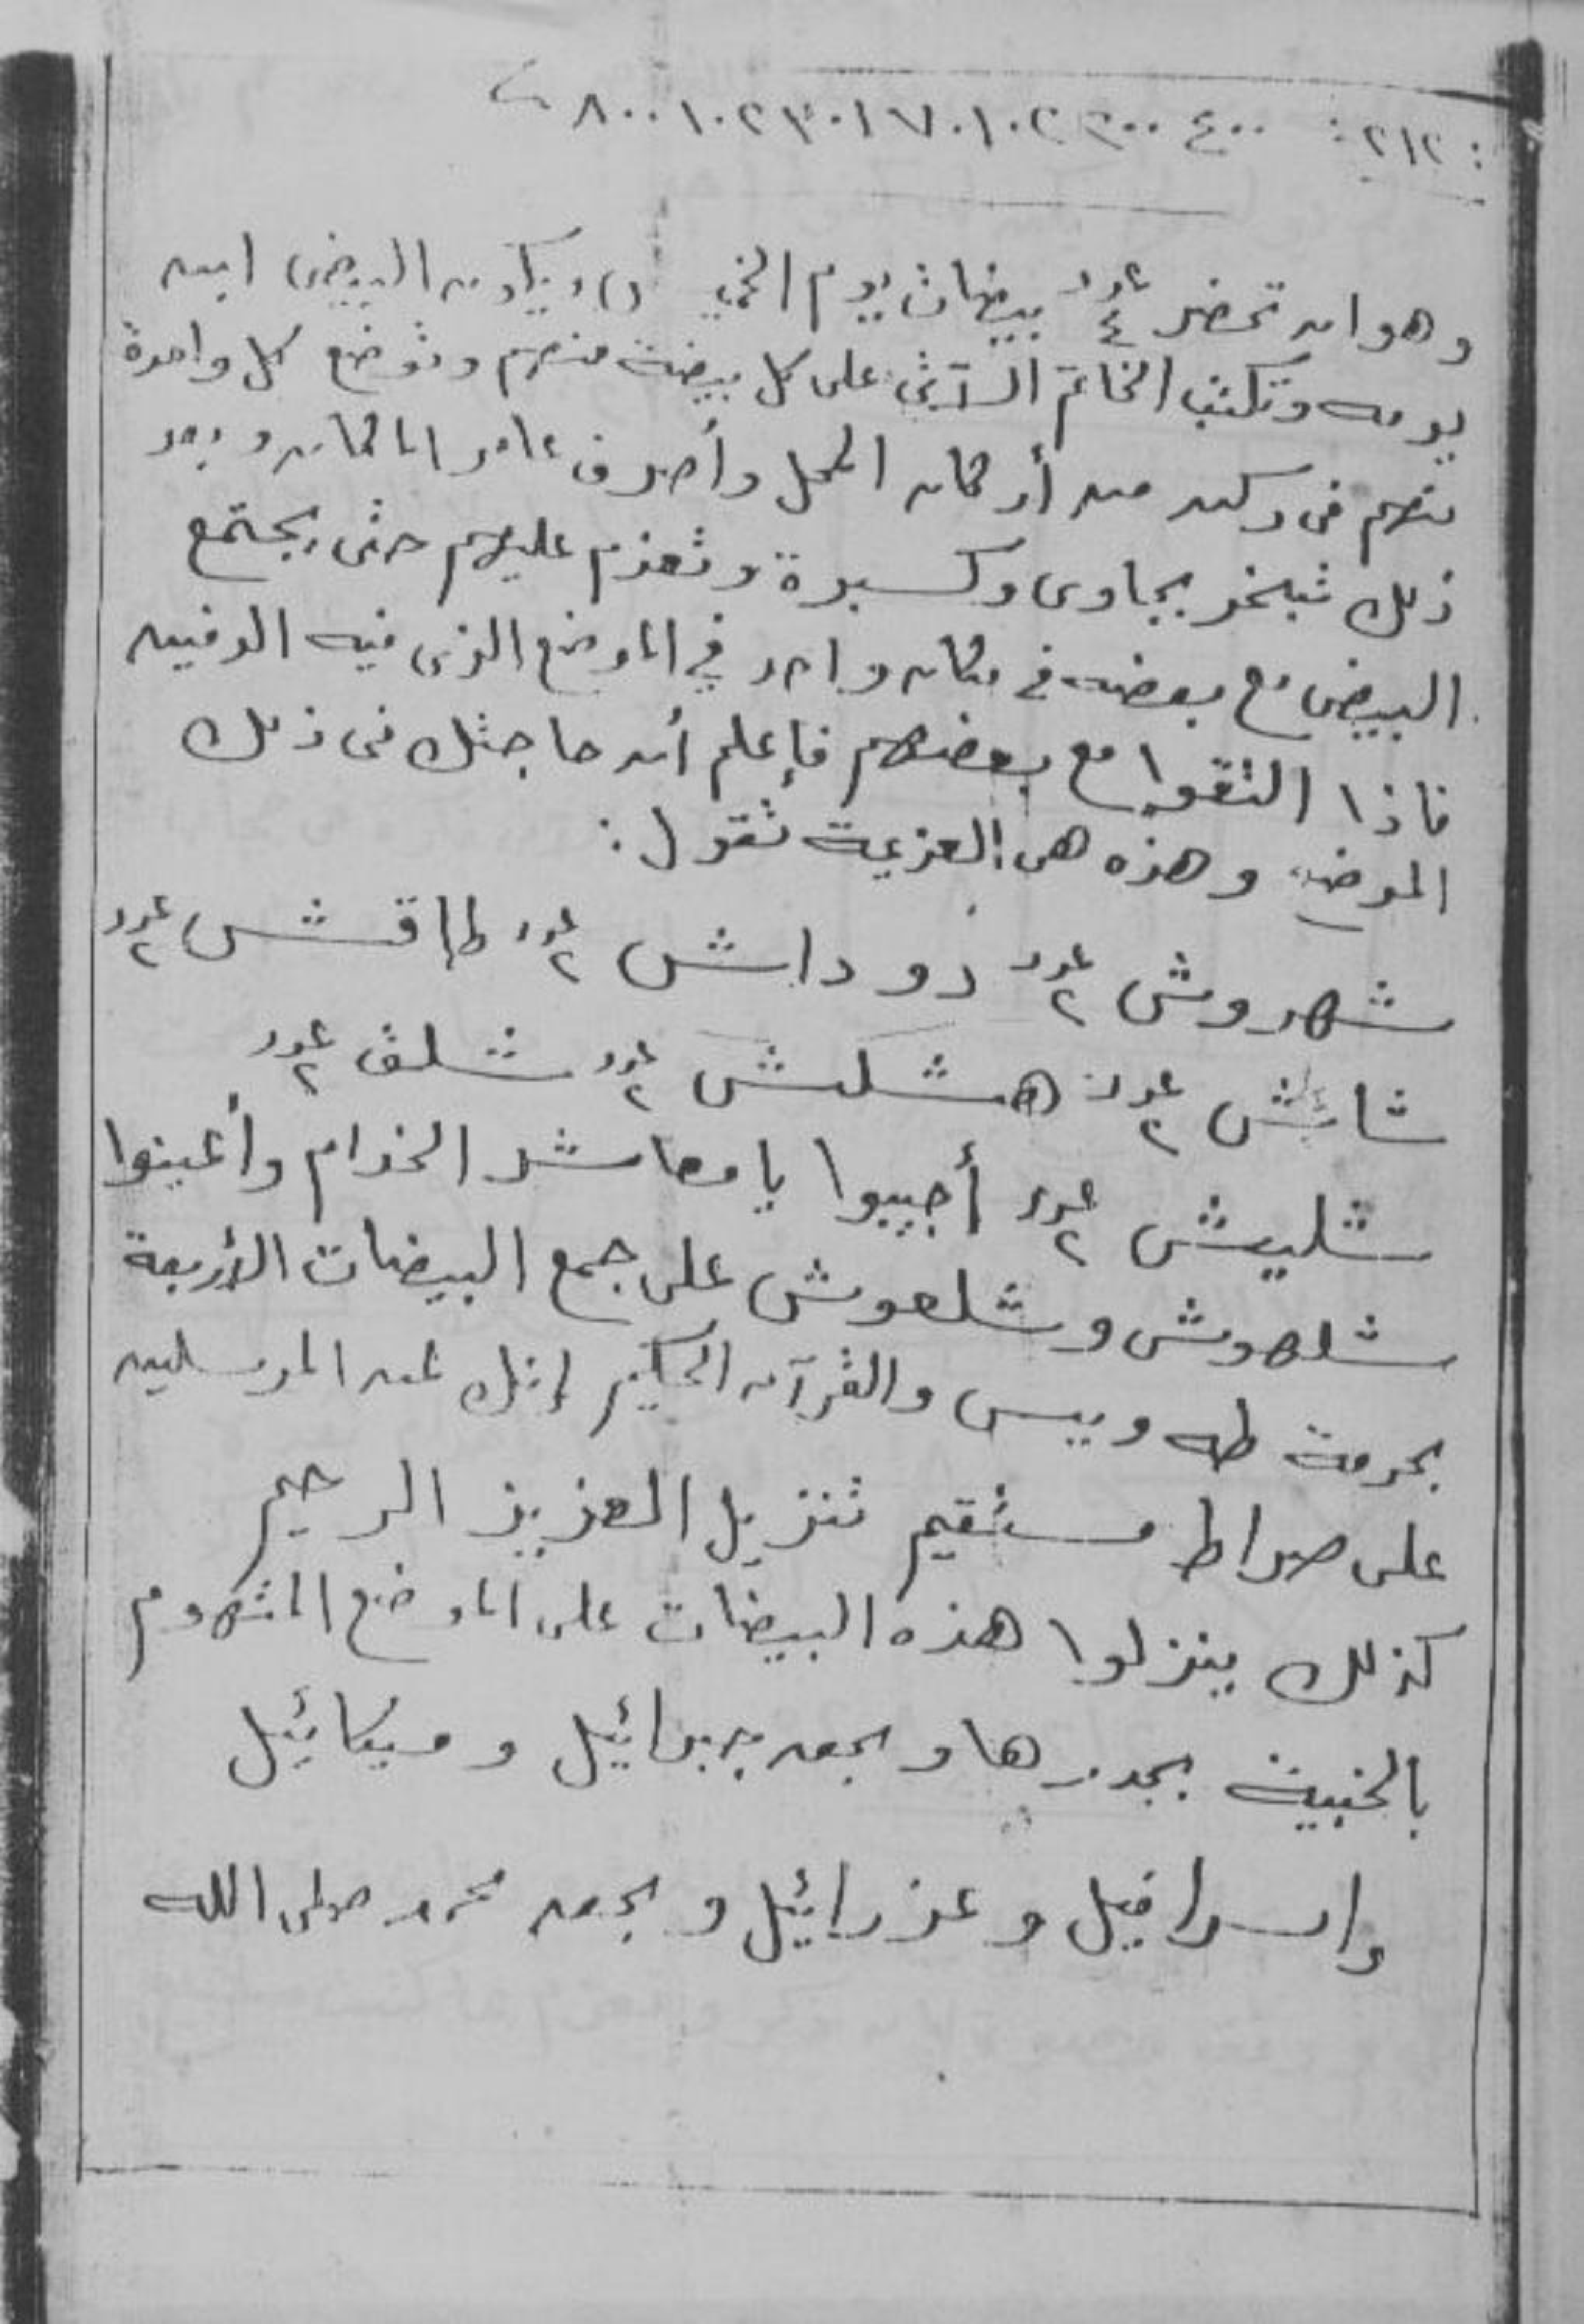 : ٢١٢ : ٤٠٠ ٨٠٠١٠٢٣٠١٧٠١٠٢٣٠٠
وهو ان تحضر عدد ٤ بيضات يوم الخميس ويكون البيض ابن
يومه وتكتب الخاتم الآتى على كل بيضة منهم وتوضع كل واحدة
منهم فى ركن من أركان المحل وأصرف عامر المكان وبعد
ذلك تبخر بجاوى وكسبرة وتعزم عليهم حتى يجتمع
البيض مع بعضه فى مكان واحد فى الموضع الذى فيه الدفين
فاذا التقوا مع بعضهم فإعلم أن حاجتك فى ذلك
الموضع وهذه هى العزيمة تقول :
شهروش عدد ٢ دوداش عدد ٢ طاقش عدد ٢
شاش عدد ٢ هشلش عدد ٢ شلف عدد ٢
شليش عدد ٢ أجيبوا يا معاشر الخدام وأعينوا
شلهوش وشلعوش على جمع البيضات الأربعة
بحرمة طه ويس والقرآن الحكيم إنك لمن المرسلين
على صراط مستقيم تنزيل العزيز الرحيم
كذلك ينزلوا هذه البيضات على الموضع المتهوم
بالخبية بجدرها وبحق جبرائيل وميكائيل
وإسرافيل وعزرائيل وبحق محمد صلى الله